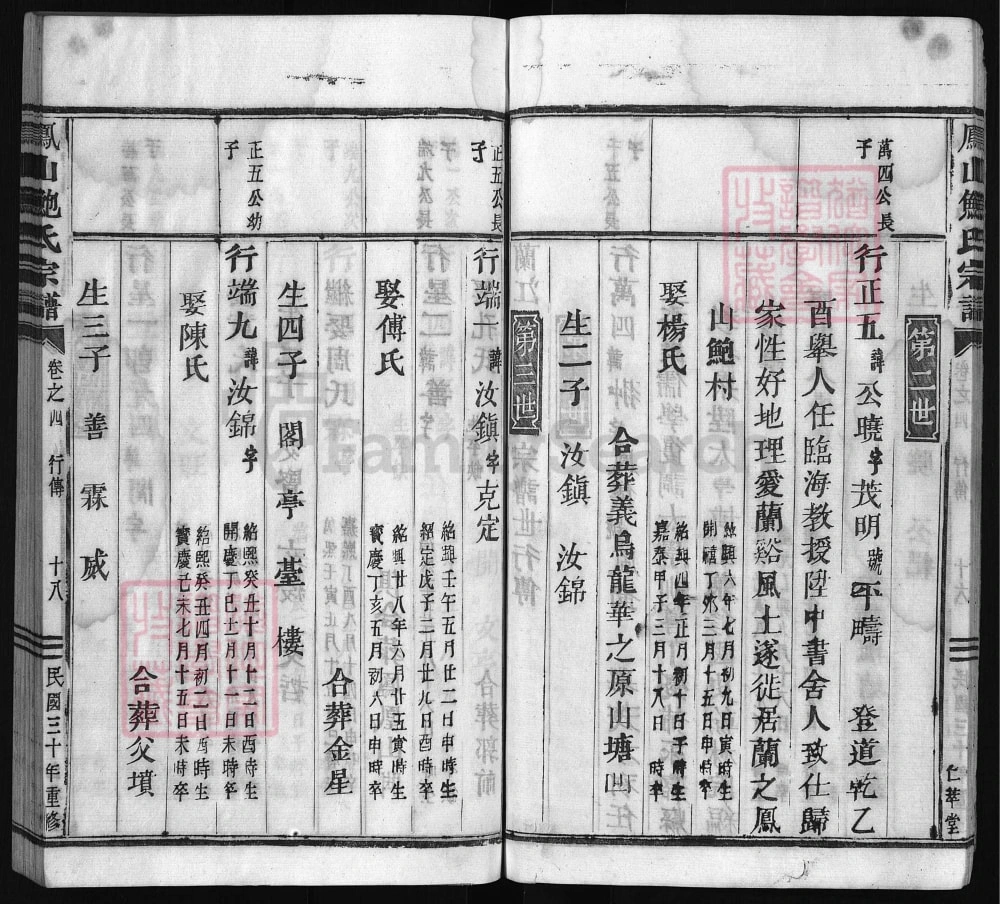 鳳山鮑氏宗譜
仁萃堂
第二世
萬四公長
子
行正五 諱公曉 字茂明 號平疇 登道乾乙
酉舉人任臨海教授陞中書舍人致仕歸
家性好地理愛蘭谿風土遂徙居蘭之鳳
山鮑村
紹興六年七月初九日寅時生
開禧丁卯三月十五日申時卒
娶楊氏
紹興四年正月初十日子時生
嘉泰甲子三月十八日 時卒
合葬義烏龍華之原山塘凹
生二子 汝鎮 汝錦
第三世
正五公長
子
行端一 諱汝鎮 字克定
紹興壬午五月廿二日申時生
紹定戊子二月廿九日酉時卒
娶傅氏
紹興廿八年六月廿五寅時生
寶慶丁亥五月初六日申時卒
合葬金星
生四子 閣 亭 臺 樓
正五公幼
子
行端九 諱汝錦 字
紹熙癸丑十月十二日酉時生
開慶丁巳十一月十一日未時卒
娶陳氏
紹熙癸丑四月初二日酉時生
寶慶己未七月十五日未時卒
合葬父墳
生三子 善 霖 威
鳳山鮑氏宗譜
卷之四 行傳 十八
民國三十年重修
FamilySearch